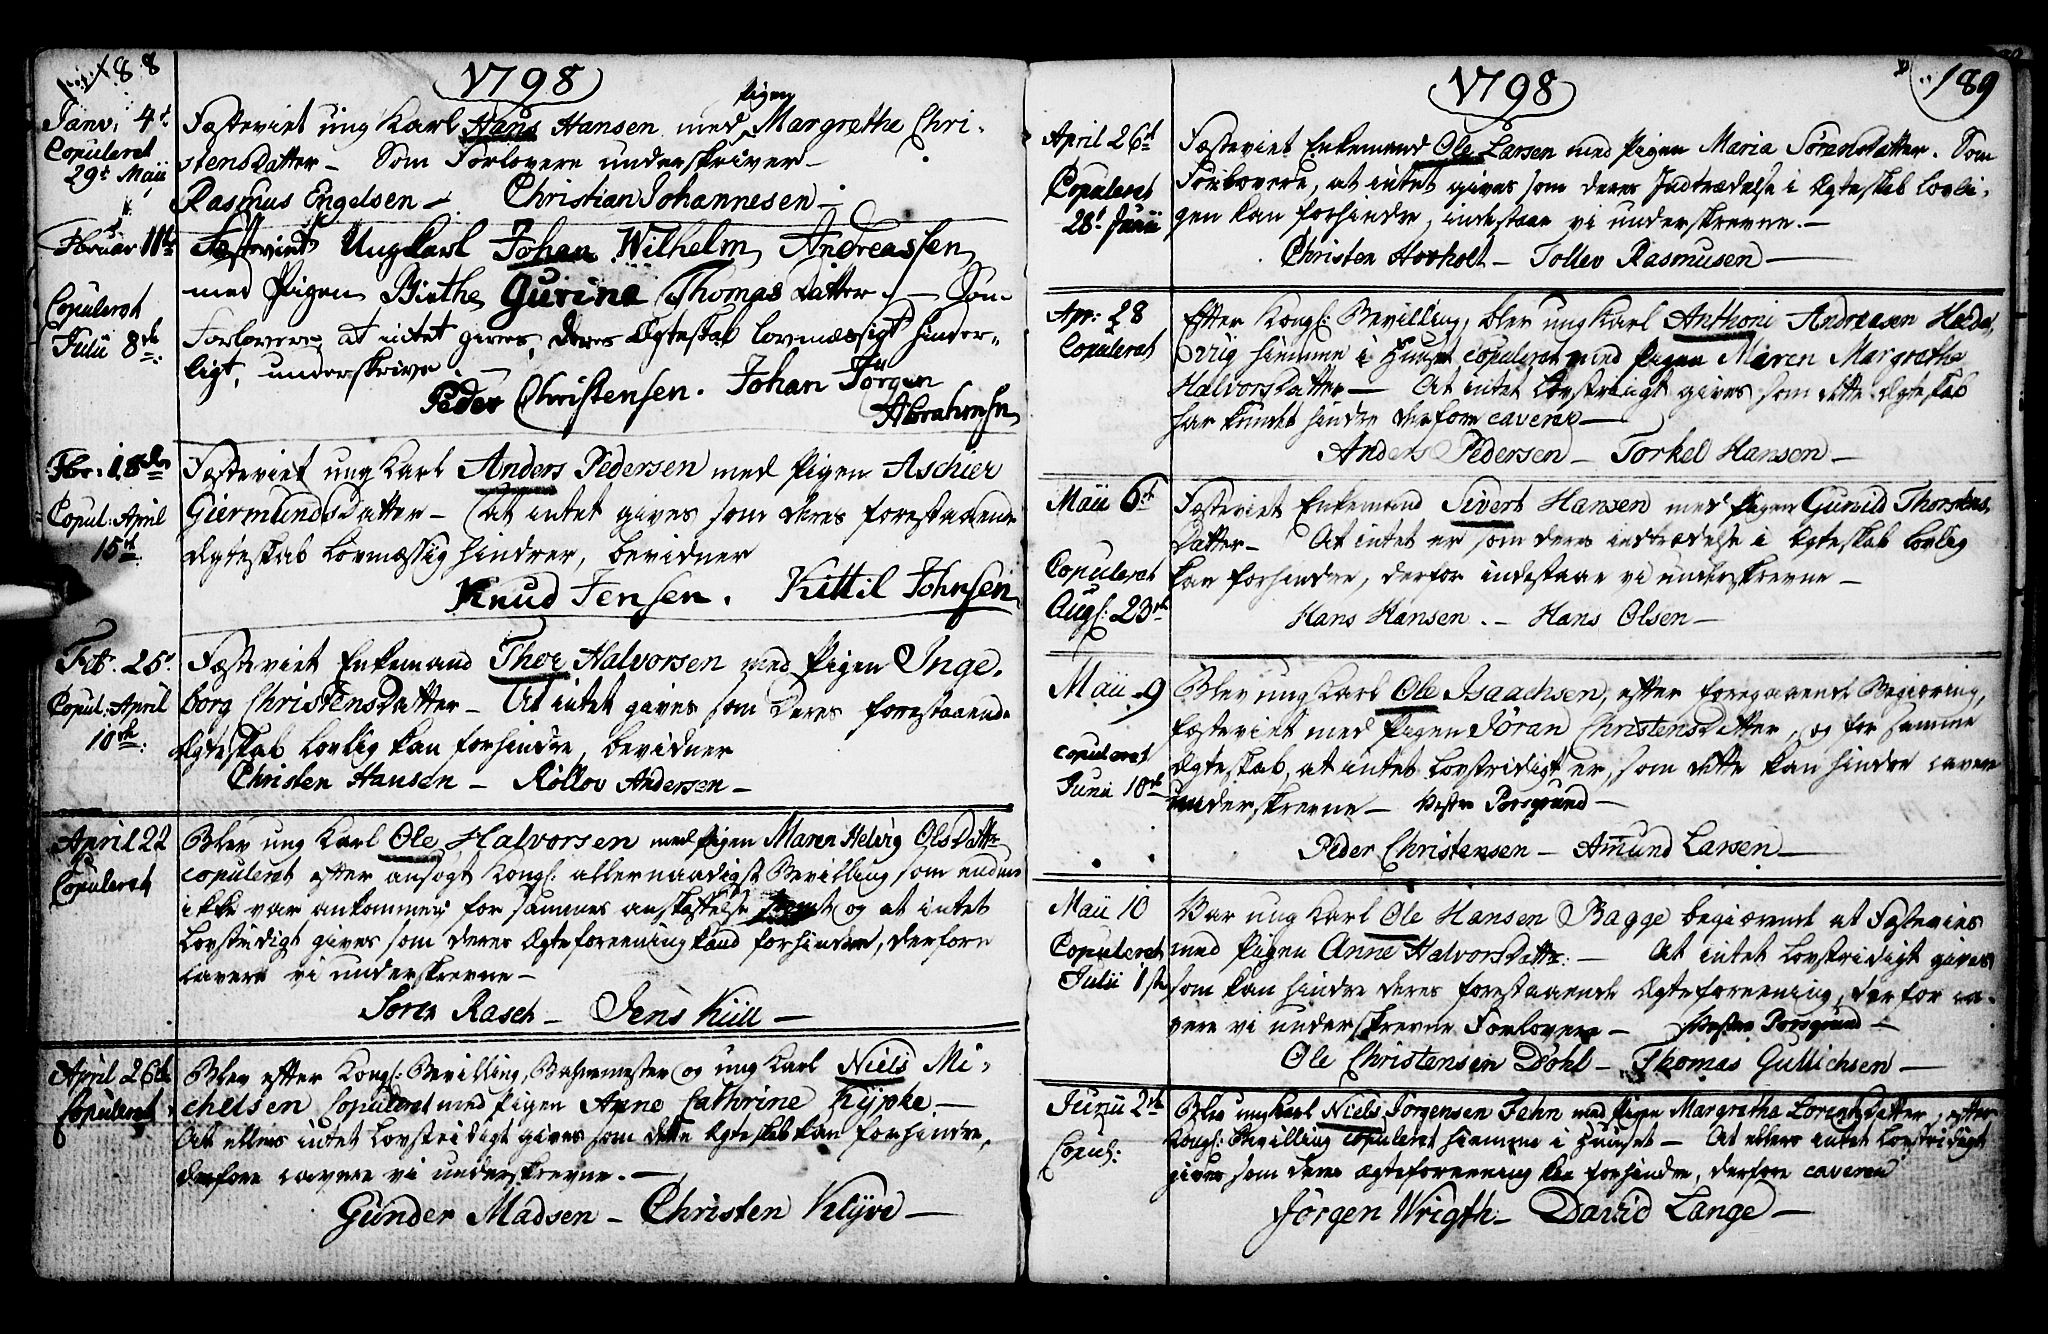 188
1798
Janv: 4t
Copuleret
29t Maii
Pigen
Fæsteviet ung Karl Hans Hansen med Margrethe Chri-
stensDatter – Som Forlovere underskriver –
Rasmus Engelsen – Christian Johannesen –
Februar 11te
Copuleret
Julii 8de
Fæsteviet Ungkarl Johan Wilhelm Andreassen
med Pigen Birthe Gurine Thomas Datter – Som
Forlovere at intet gives, deres Ægteskab lovmæssigt hinder-
ligt, underskrive
Peder Christensen. Johan Jörgen
Abrahmsen
Fbr: 18de
Copul: April
15de
Fæsteviet ung Karl Anders Pedersen med Pigen Aschier
GiermundsDatter – at intet gives som deres forestaaende
Ægteskab lovmæssig hindrer, bevidner
Knud Jensen. Kittil Johnsen
Feb. 25
Copul: April
10de
Fæsteviet Enkemand Thor Halvorsen med Pigen Inge-
borg ChristensDatter – At intet gives som deres forestaaende
Ægteskab lovlig kan forhindre, bevidner
Christen Hansen – Rollov Andersen –
April 22
Copuleret
Blev ung Karl Ole Halvorsen med Pigen Maren Helvig OlsDattr
copuleret efter ansögt Kongl: allernaadigst Bevilling, som endnu
ikke var ankommen for sammes anskaffelse og at intet
lovstridigt gives som deres Ægteforeening kand forhindre, derfore
cavere vi underskrevne –
Sören Rasch – Jens Kiil –
April 26de
Copuleret
Blev efter Kongl: Bevilling, og ung Karl Niels Mi-
chelsen Copuleret med Pigen Anne Cathrine Kypke –
At ellers intet lovstridigt gives som dette Ægteskab kan forhindre,
derfore cavere vi underskrevne. –
Gunder Madsen – Christen Klyve –
189
1798
April 26d
Copuleret
28t Junii
Fæsteviet Enkemand Ole Larsen med Pigen Maria SörensDatter. Som
Forlovere, at intet gives som deres Indtrædelse i Ægteskab lovli-
gen kan forhindre, indestaae vi underskrevne. –
Christen Hovholt – Tollev Rasmusen –
Apr: 28
Copuleret
Efter Kongl: Bevilling, blev ung Karl Anthoni Andreasen
hiemme i Huuset copuleret med Pigen Maren Margrethe
HalvorsDatter – At intet lovstridigt gives som dette Ægteskab
har kundet hindre derfore cavere –
Anders Pedersen – Torkel Hansen –
Maii 6t
Copuleret
Augs: 23de
Fæsteviet Enkemand Sivert Hansen med Pigen Gunild Thorstens
Datter – At intet er som deres indtrædelse i Ægteskab lovlig
kan forhindre, derfor indestaae vi underskrevne –
Hans Hansen. – Hans Olsen –
Maii 9
copuleret
Junii 10de
Blev ung Karl Ole Isaachsen, efter foregaaende Begiering,
fæsteviet med Pigen Jöran ChristensDatter, og for samme
Ægteskab, at intet lovstridigt er, som dette kan hindre cavere
underskrevne – Vester Porsgrund –
Peder Christensen – Amund Larsen –
Maii 10
Copuleret
Julii 1ste
Var ung Karl Ole Hansen Bagge begierende at Fæstevies
med Pigen Anne HalvorsDattr: – At intet lovstridigt gives
som kan hindre deres forestaaende Ægteforeening, derfor ca-
vere vi underskrevne Forlovere – Vester Porsgrund –
Ole Christensen Döhl – Thomas Gullichsen –
Junii 2de
Copul:
Blev ung Karl Niels Jörgensen Fehn med Pigen Margretha LorentzDatter, efter
Kongl: Bevilling copuleret hiemme i Huuset – At ellers intet lovstridigt
gives som deres Ægteforeening kan forhindre, derfore caveren
Jörgen Wrigth – David Lange –